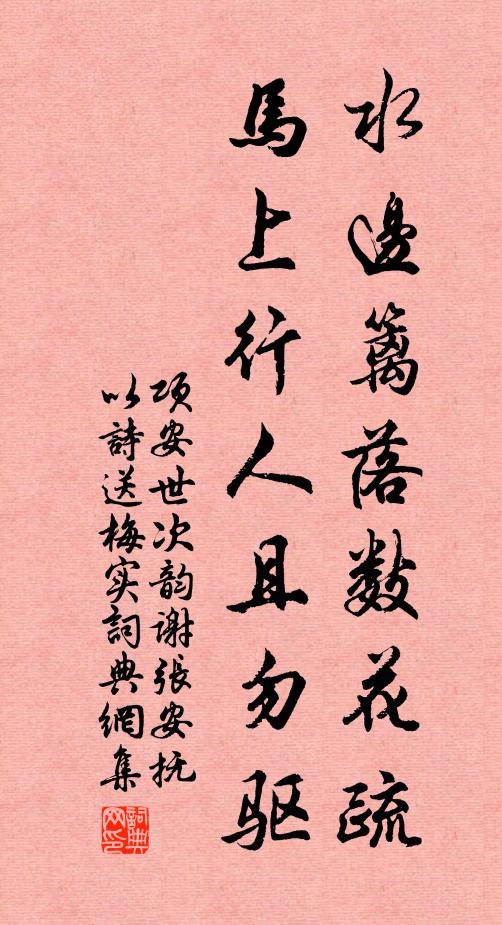 水邊篱落数花疏
馬上行人且勿驱
项安世次韵谢張安抚
以詩送梅实詞典網集
詞典网印